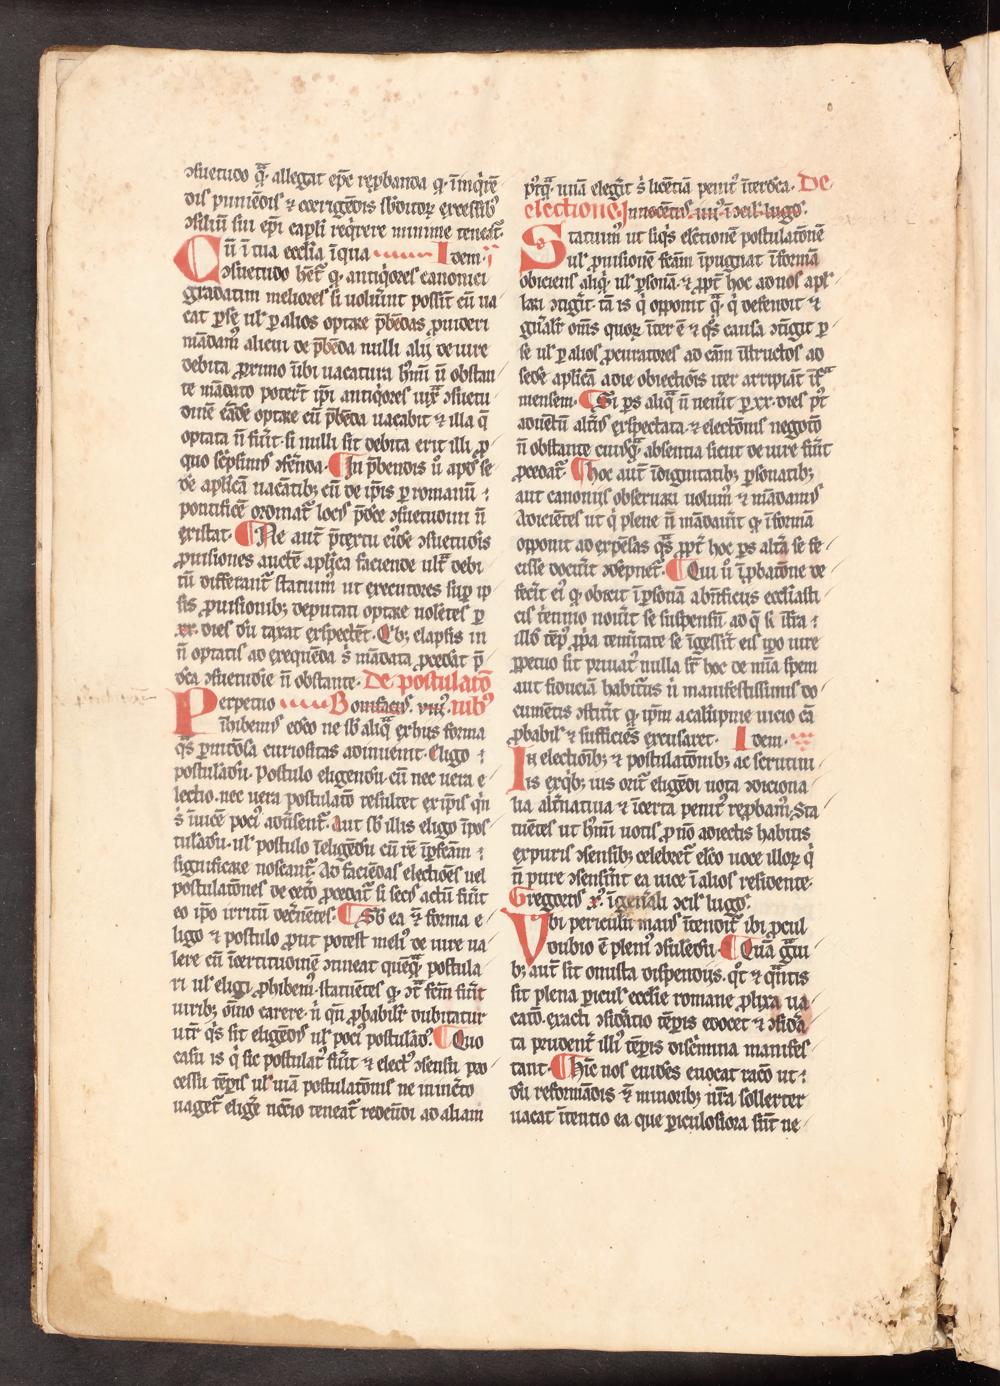 ↄsuetudo q̄ª allegat̄ ep̄c rep̄banda q̨ in̄iq̇rēn
dis puniēdis ⁊ corrigēdis sb̄ditoꝝ excessib9
ↄsiliū sui ep̄i capl̄i req̇rere minime teneat̄
Cū ī tua eccl̄ia īqua Idem
ↄsuetudo hēt q̨ antiq̇ores canonici
gradatim meliores si voluīnt possīt cū va
cāt ꝑ se ul̄ ꝑ alios optare p̄bēdas ꝓvideri
mādam9 alicui de p̄bēda nulli alij de iure
debita ꝓximo ubi vacatura hm̄ōi ū obstan
te mādato poterīt ip̄i antiq̇ores iux̄ª ↄsuetu
dinē eādē optare cū p̄bēda vacabit ⁊ illa q̄
optata ū fūit si nulli sit debita erit illi ꝓ
quo sc̄psim9 ↄferēda. In p̄bendis ū apd̄ se
dē aplicā vacātib; cū de ip̄is ꝑ romanū
pontificē ordinat̄ locū p̄dc̄e ↄsuetudini ū
existat. Ne aut̄ p̄textu ei9de ↄsuetudīs
ꝓuisiones auctē aplica faciende ult̄ª debi
tū differant̄ statuim9 ut executores sup̄ ip
sis ꝓuisionib; deputati optare volētes ꝑ
xx. dies dūtaxat expectēt. Qb; elapsis in
ū optatis ad exequēda s̄ mādata ꝓcedāt p̄
dc̄a ↄsuetudīe ū obstante. De postulatō
Perpetuo Bonifaci9. viij. nib9
īhibem9 edc̄o ne sb̄ aliq̄ª ex his forma
q̄s ꝑnitōsa curiositas adinuenit. Eligo
postulādū. Postulo eligendū. cū nec vera e
lectio. nec vera postulatō resultet ex ip̄is qn̄
s̄ inuicē poci9 aduersent̄. Aut sb̄ illis eligo īpos
tulādū. ul̄ postulo īeligēdū cū rē īꝑfcām
significare noscant̄. Ad faciēdas electiōes vel
postulatōnes de cet̄o ꝓcedat̄ si sec9 actū fūit
eo ip̄o irritū decn̄etes. Sb̄ ea ū forma e
ligo ⁊ postulo ꝓut potest meli9 de iure va
lere cū īcertitudinē ↄtineat quēq̄ª postula
ri ul̄ eligi ꝓhibem9. statuētes q̨ ↄt̄ª fcm̄ fūit
virib; oīno carere. ū qn̄ ꝓbabilit̄ dubitatur
utr̄ q̄s sit eligēd9 ul̄ poci9 postulād9. Quo
casu is q̇ sic postulat9 fūit ⁊ elect9 ↄsensu ꝓ
cessu tꝑis ul̄ viā postulatōnis ne in inc̄to
vaget̄ elige n̄cc̄io teneat̄ redeūdi ad aliam
p9tq̄ª unā elegīt s̄ licētia penit9 īterdc̄a. De
electione. Innocēti9 iiij. ī ↄcil. lugd.
Statuim9 ut siq̇s elc̄tionē postulatōnē
ul̄ ꝓuisionē fcām īpugnat ī formā
obiciens aliq̇ ul̄ ꝑsonā ⁊ ꝓpt̄ hoc ad nos apl̄
lari ↄtigīt. tā is q̇ opponit q̄ª q̇ defendit ⁊
gn̄alit̄ om̄s quoꝝ īter ē ⁊ q̄s causa ↄtigit ꝑ
se ul̄ ꝑ alios ꝓcuratores ad cām īstructos ad
sedē aplicā a die obiectiōis iter arripiāt īf̄ª
mensem. Si ꝑs aliq̄ª ū venīt ꝑ xx. dies p9t
aduētū alti9 exspectata. ⁊ electōnis negotō
ū obstante cui9q̄ª absentia sicut de iure fūit
ꝓcedat̄. Hoc aut̄ ī dignitatib; ꝑsonatib;
aut canoniis obseruari volum9 ⁊ mādam9
Adiciētes ut q̇ plene ū mādauīt q̨ ī formā
opponit ad expēsas q̄s ꝓpt̄ hoc ꝑs altā se fe
cisse docuīt ↄdepnet̄. Qui ū ī ꝓbatōne de
fecīt ei9 q̨ obicit ī ꝑsonā a bn̄ficiis eccl̄iasti
cis triēnio nouīt se suspensū ad q̄ si īfra
illd̄ tēp9 ꝓp̄a temītate se īgessīt eis ipo iure
ꝑpetuo sit priuat9 nulla sr̄ hoc de mīa spem
aut fiduciā habitur9 ū manifestissimis do
cumētis ↄstiūt q̨ ip̄m a calūpnie vicio cā
ꝓbabil̄ ⁊ sufficiēs excusaret. Idem.
In electiōīb; ⁊ postulatōnib; ac scrutini
is ex qb; ius orit̄ eligēdi vota ↄdiciona
lia alt̄natiua ⁊ īcerta penit9 rep̄bam9. Sta
tuētes ut hm̄ōi votis ꝓ nō adiectis habitis
ex puris ↄsensib; celebret̄ elc̄o voce illoꝝ q̇
ū pure ↄsensīnt ea vice ī alios residente.
Gregori9 x9. ī gen̄ali ↄcil. lugd9.
Ubi periculū mai9 ītendit̄ ibi ꝓcul
dubio ē pleni9 ↄsulēdū. Quā gªui
b; aut̄ sit onusta dispendiis. q̊t ⁊ qªntis
sit plena ꝑicul̄ eccl̄ie romane ꝓlixa va
catō. exacti ↄsid̄atio tꝑis edocet ⁊ ↄsid̄a
ta prudent̄ illi9 tꝑis discrimina manifes
tant. Hīc nos euidēs euocat racō ut
dū reformādis ⁊ minorib; nr̄a sollerter
vacat ītentio ea que ꝑiculosiora sūt ne